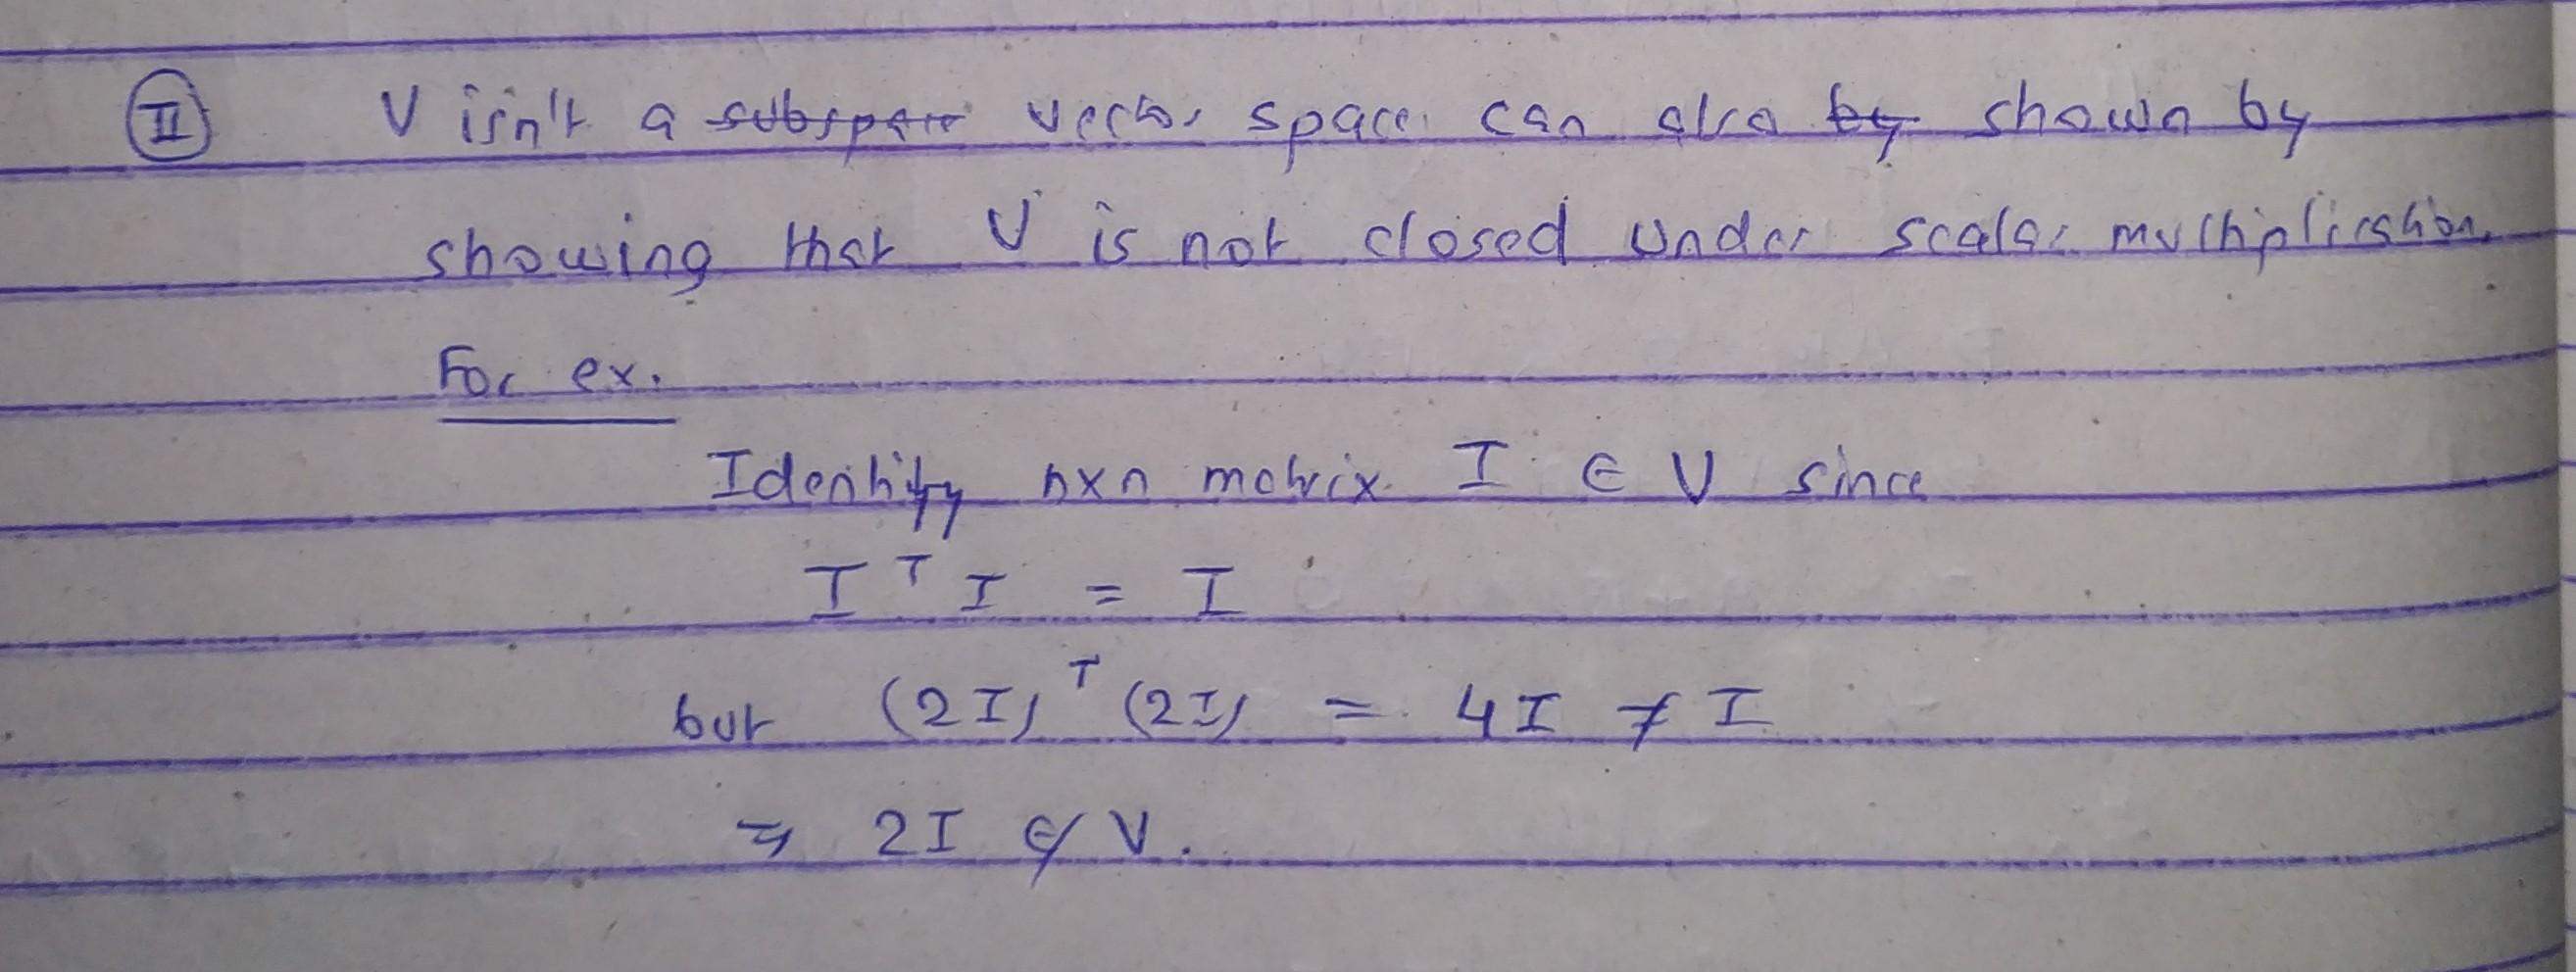 II V isn't a subspace vector space can also by shown by
showing that V is not closed under scalar multiplication.
For ex.
Identity n×n matrix I ∈ V since
I^T I = I
but (2I)^T (2I) = 4I ≠ I
⇒ 2I ∉ V.